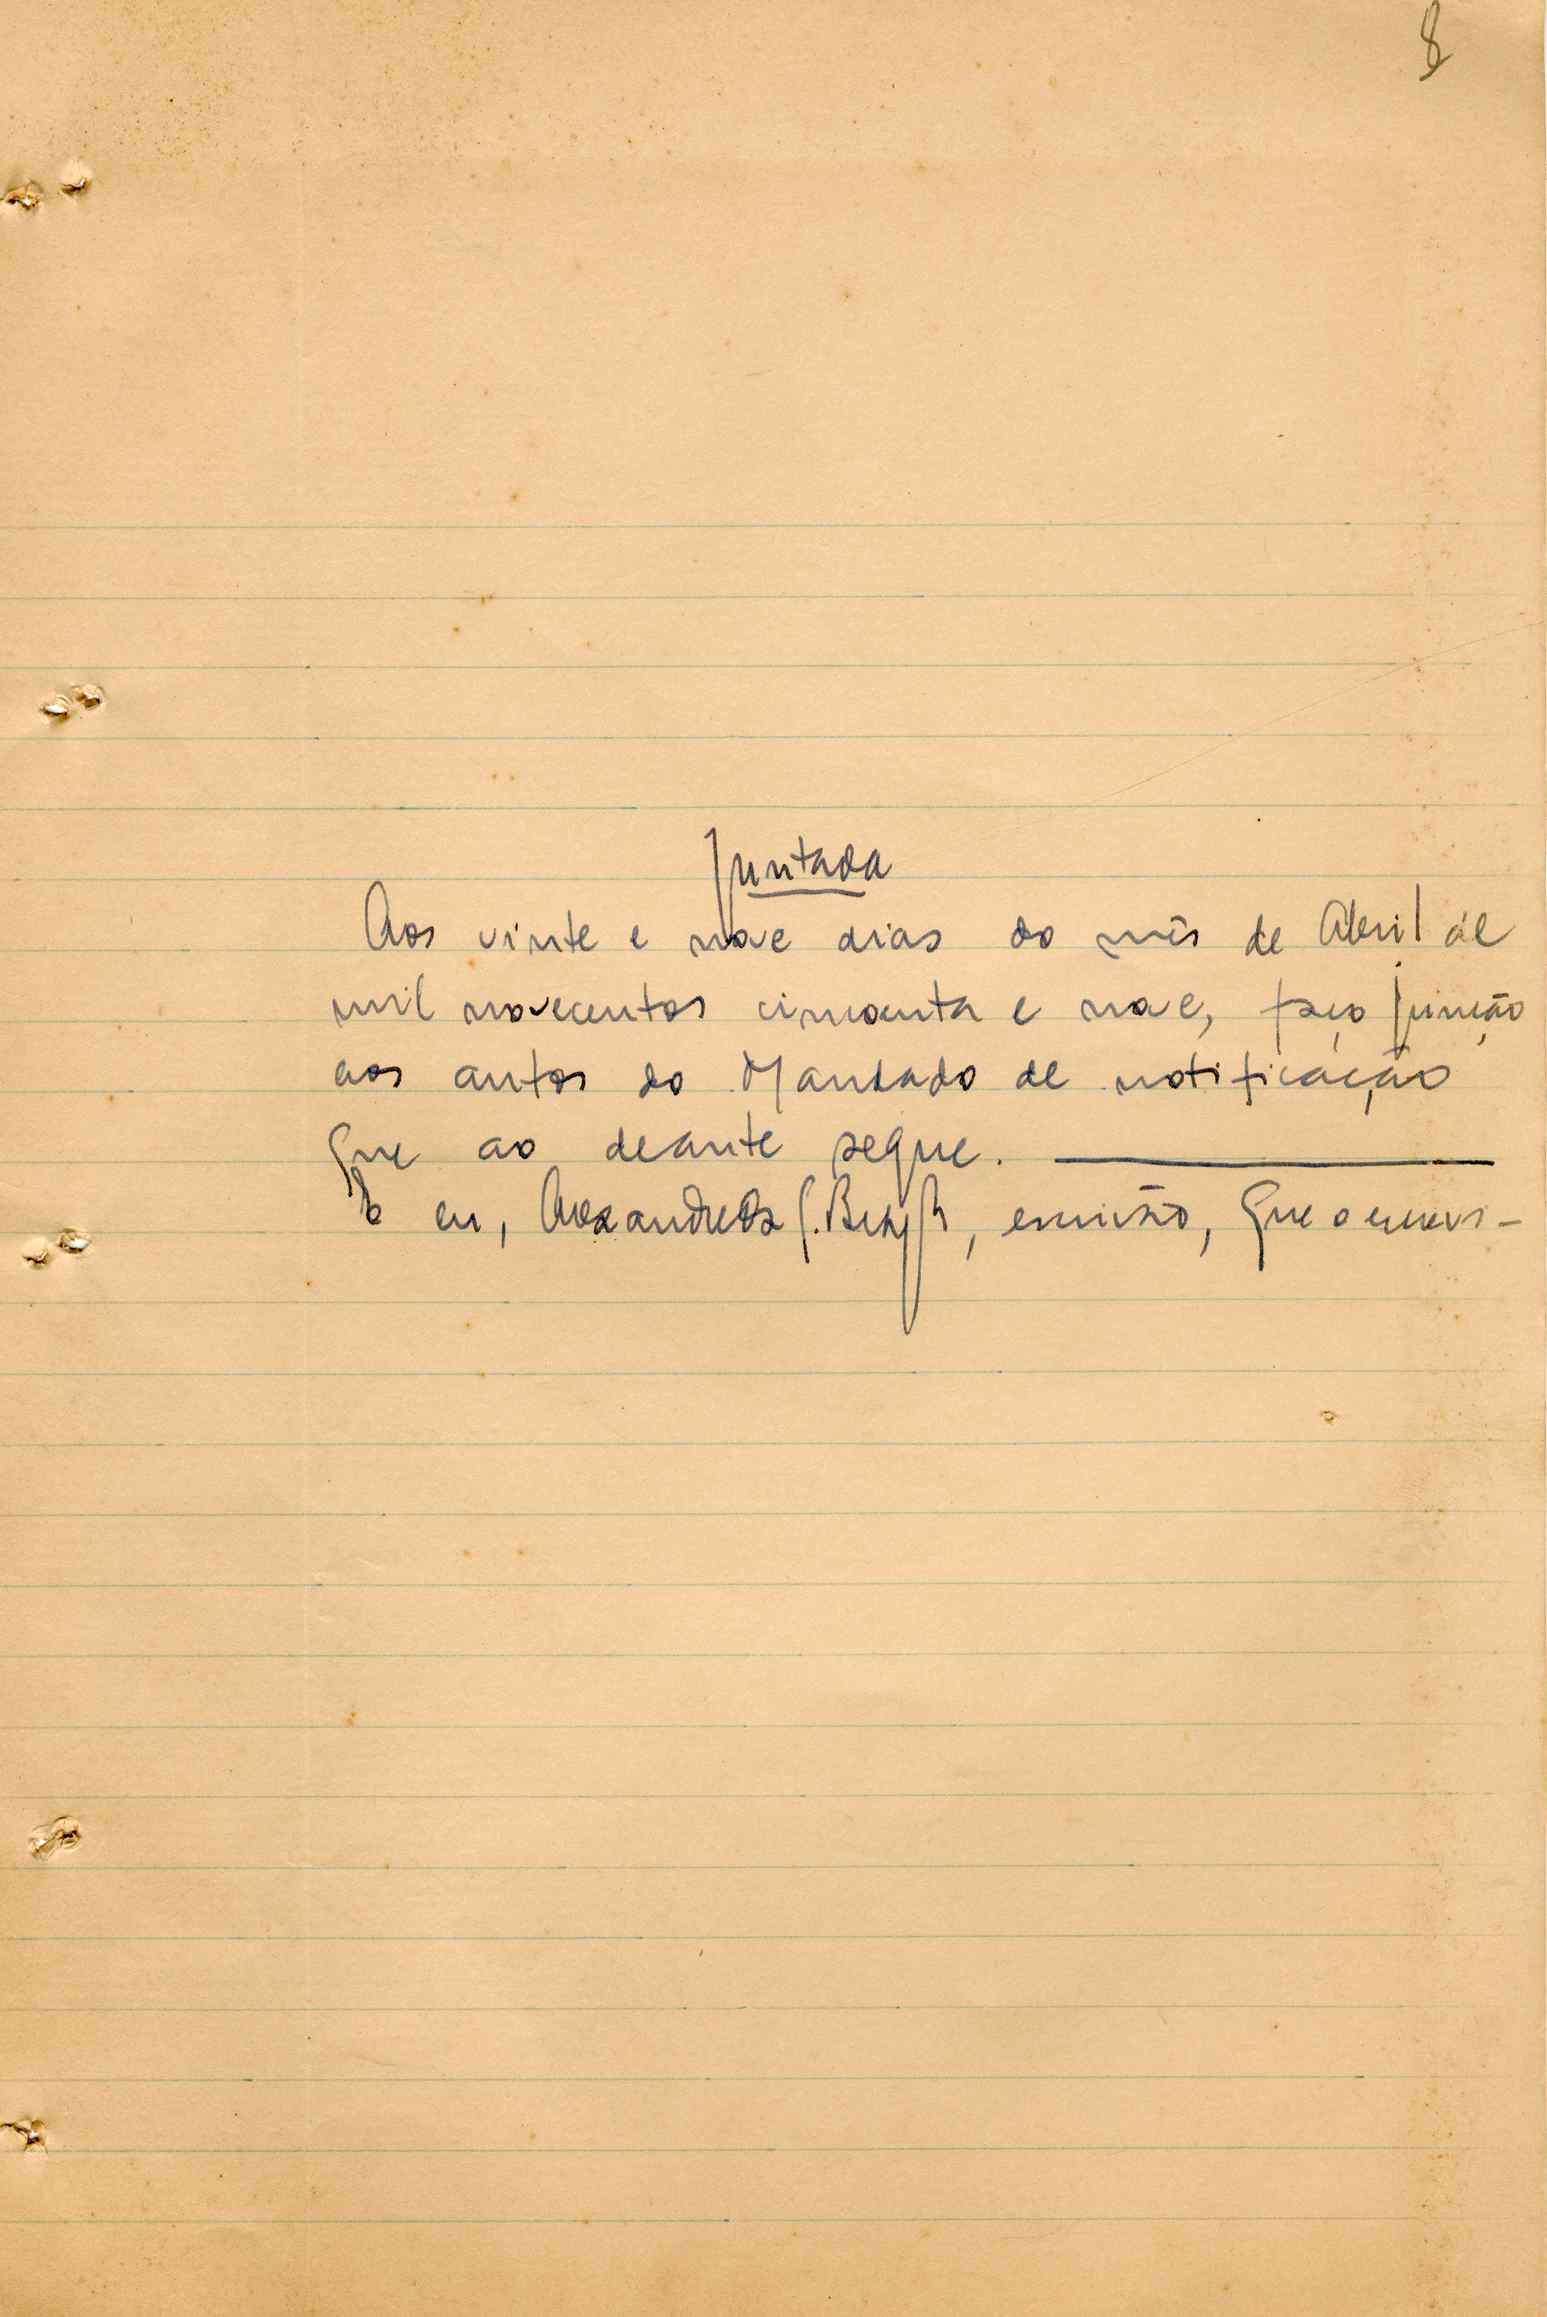 8
Juntada
Aos vinte e nove dias do mês de Abril de
mil novecentos cincoenta e nove, faço junção
aos autos do Mandado de notificação
que ao deante segue.
E eu, escrivão, que o escrevi-